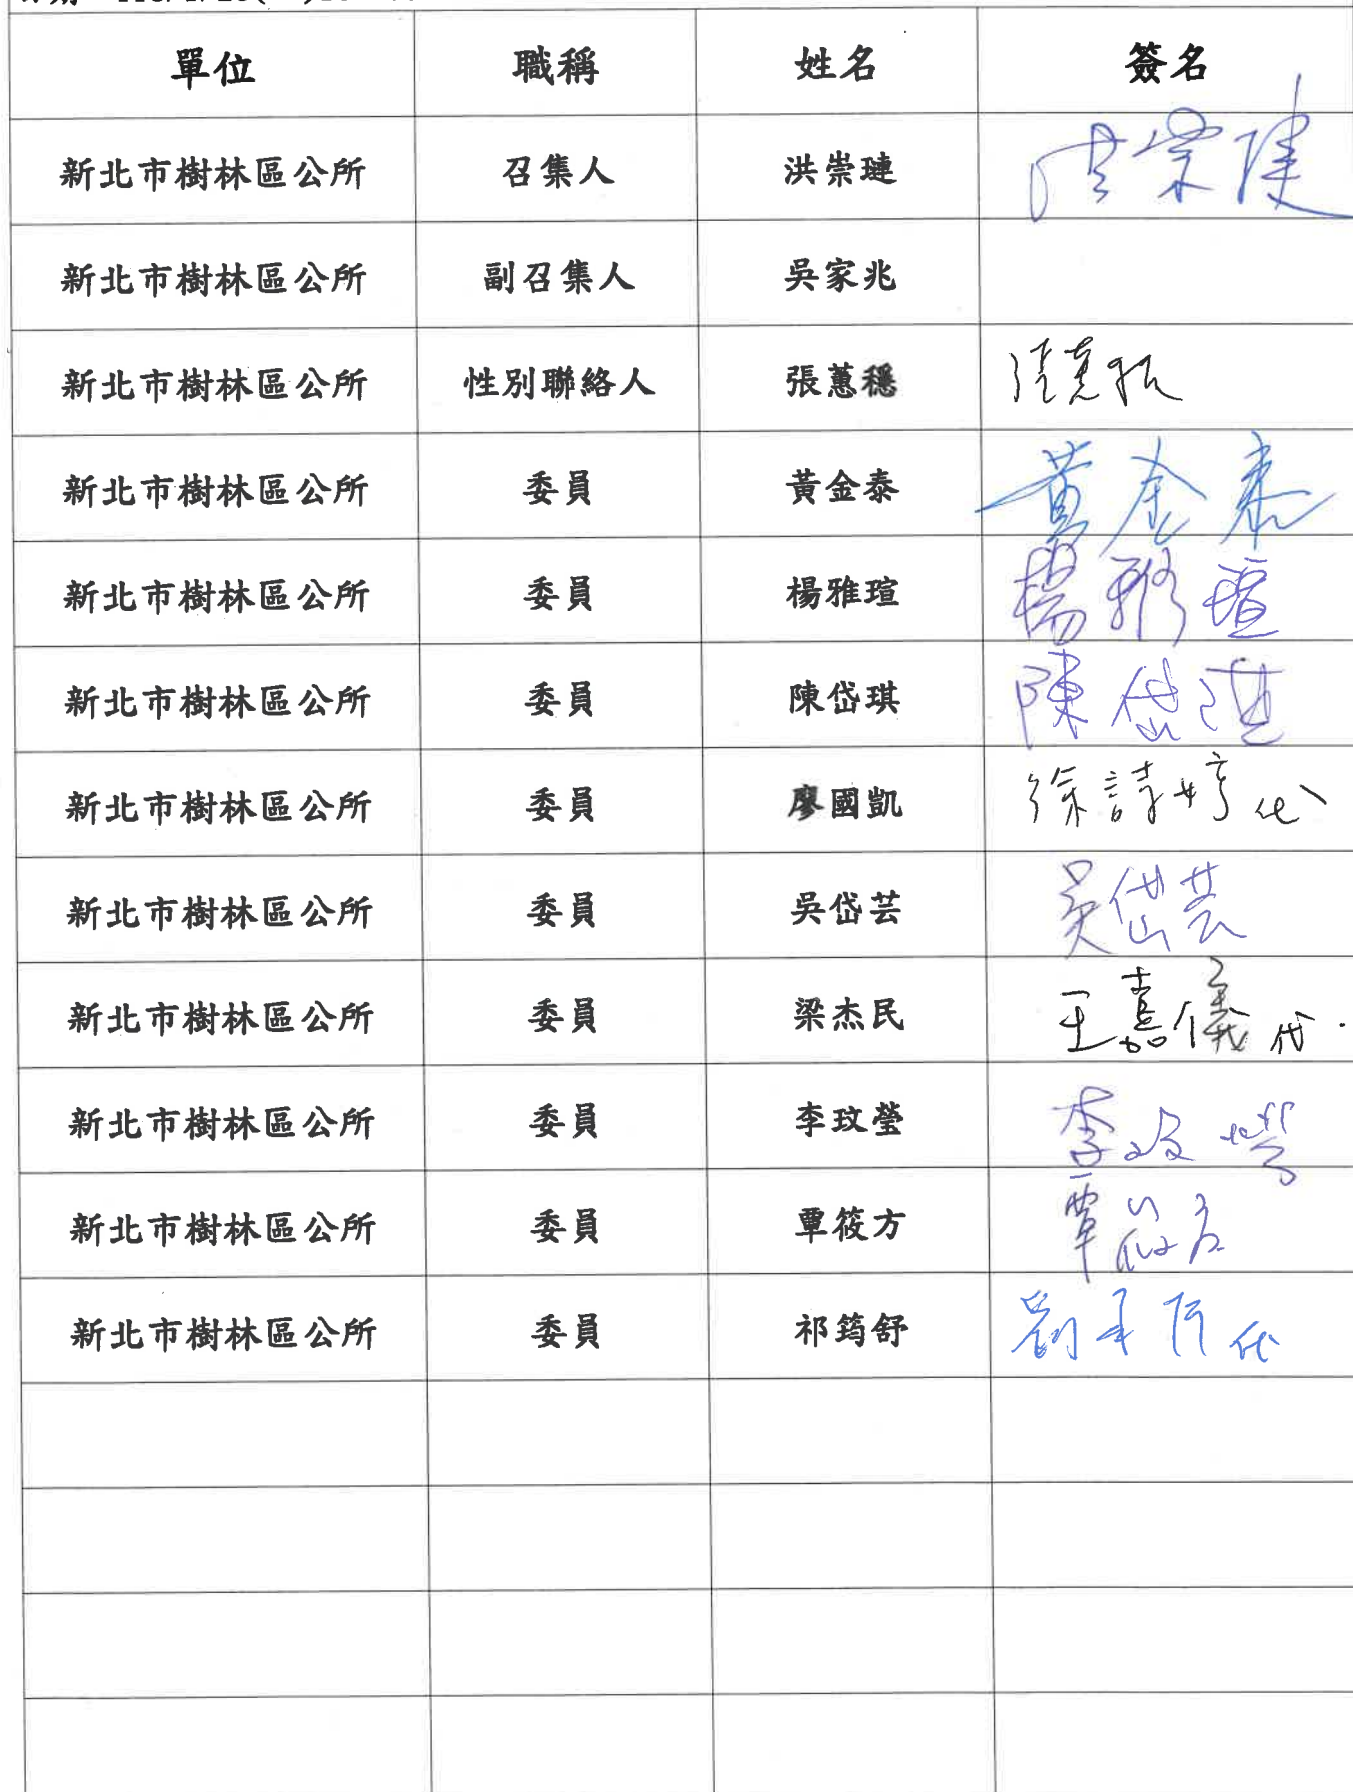 單位 職稱 姓名 簽名
新北市樹林區公所 召集人 洪崇璉 洪崇璉
新北市樹林區公所 副召集人 吳家兆
新北市樹林區公所 性別聯絡人 張蕙穩
新北市樹林區公所 委員 黃金泰 黃金泰
新北市樹林區公所 委員 楊雅瑄 楊雅瑄
新北市樹林區公所 委員 陳岱琪 陳岱琪
新北市樹林區公所 委員 廖國凱 徐詩婷代
新北市樹林區公所 委員 吳岱芸 吳岱芸
新北市樹林區公所 委員 梁杰民 王嘉儀代
新北市樹林區公所 委員 李玟瑩 李玟瑩
新北市樹林區公所 委員 覃筱方 覃筱方
新北市樹林區公所 委員 祁筠舒 代